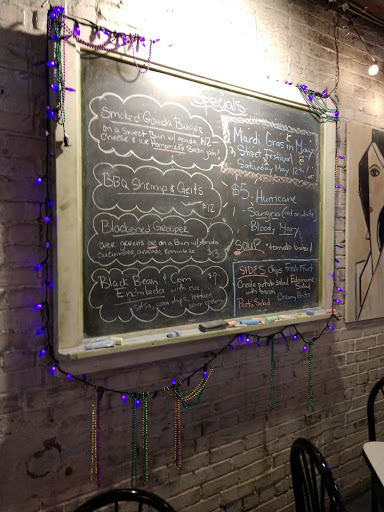 Specials
Smoked Gouda Burger
on a Sweet Bun w/
cheese & Homemade Bacon jam!
BBQ Shrimp & Grits
$12
Blackened Grouper
Over greens or on a Bun w/ tomato
cucumber, avocado
Black Bean & Corn $9
Enchilada with rice,
Salsa, corn chips, lettuce
sour cream
Mardi Gras in May!
Street Festival
Saturday May 12th!
$5. Hurricane
Sangria (red or white)
Bloody Mary
SOUP tomato
SIDES Chips Fresh Fruit
Creole potato salad Edamame
with bacon Salad
Pasta Salad Creamy Grits